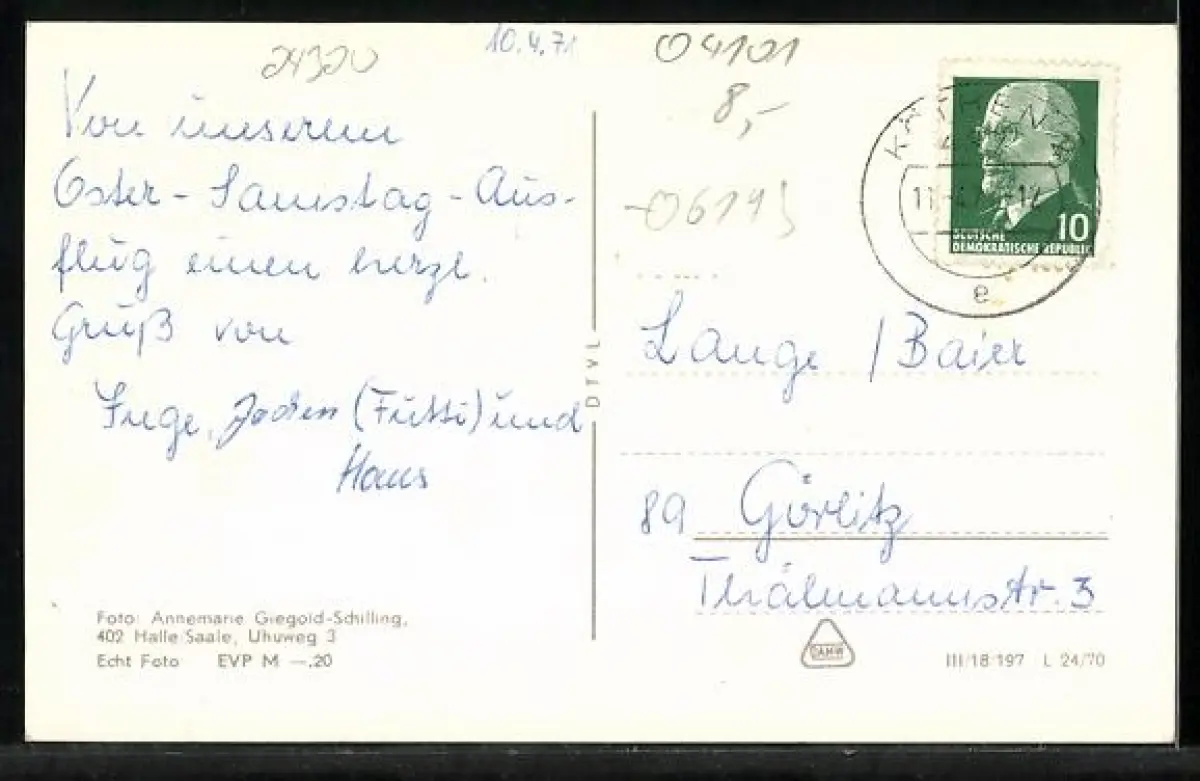 10.4.71
24320
04101
8,-
Von unserem
Oster-Samstag-Aus-
flug einen herzl.
Gruß von
Inge, Jochen (Futti) und
Hans
Foto: Annemarie Giegold-Schilling,
402 Halle/Saale, Uhuweg 3
Echt Foto EVP M —.20
DTVL
10
DEUTSCHE
DEMOKRATISCHE REPUBLIK
e
Lange / Baier
89 Görlitz
Thälmannstr. 3
DAMW
III/18/197 L 24/70